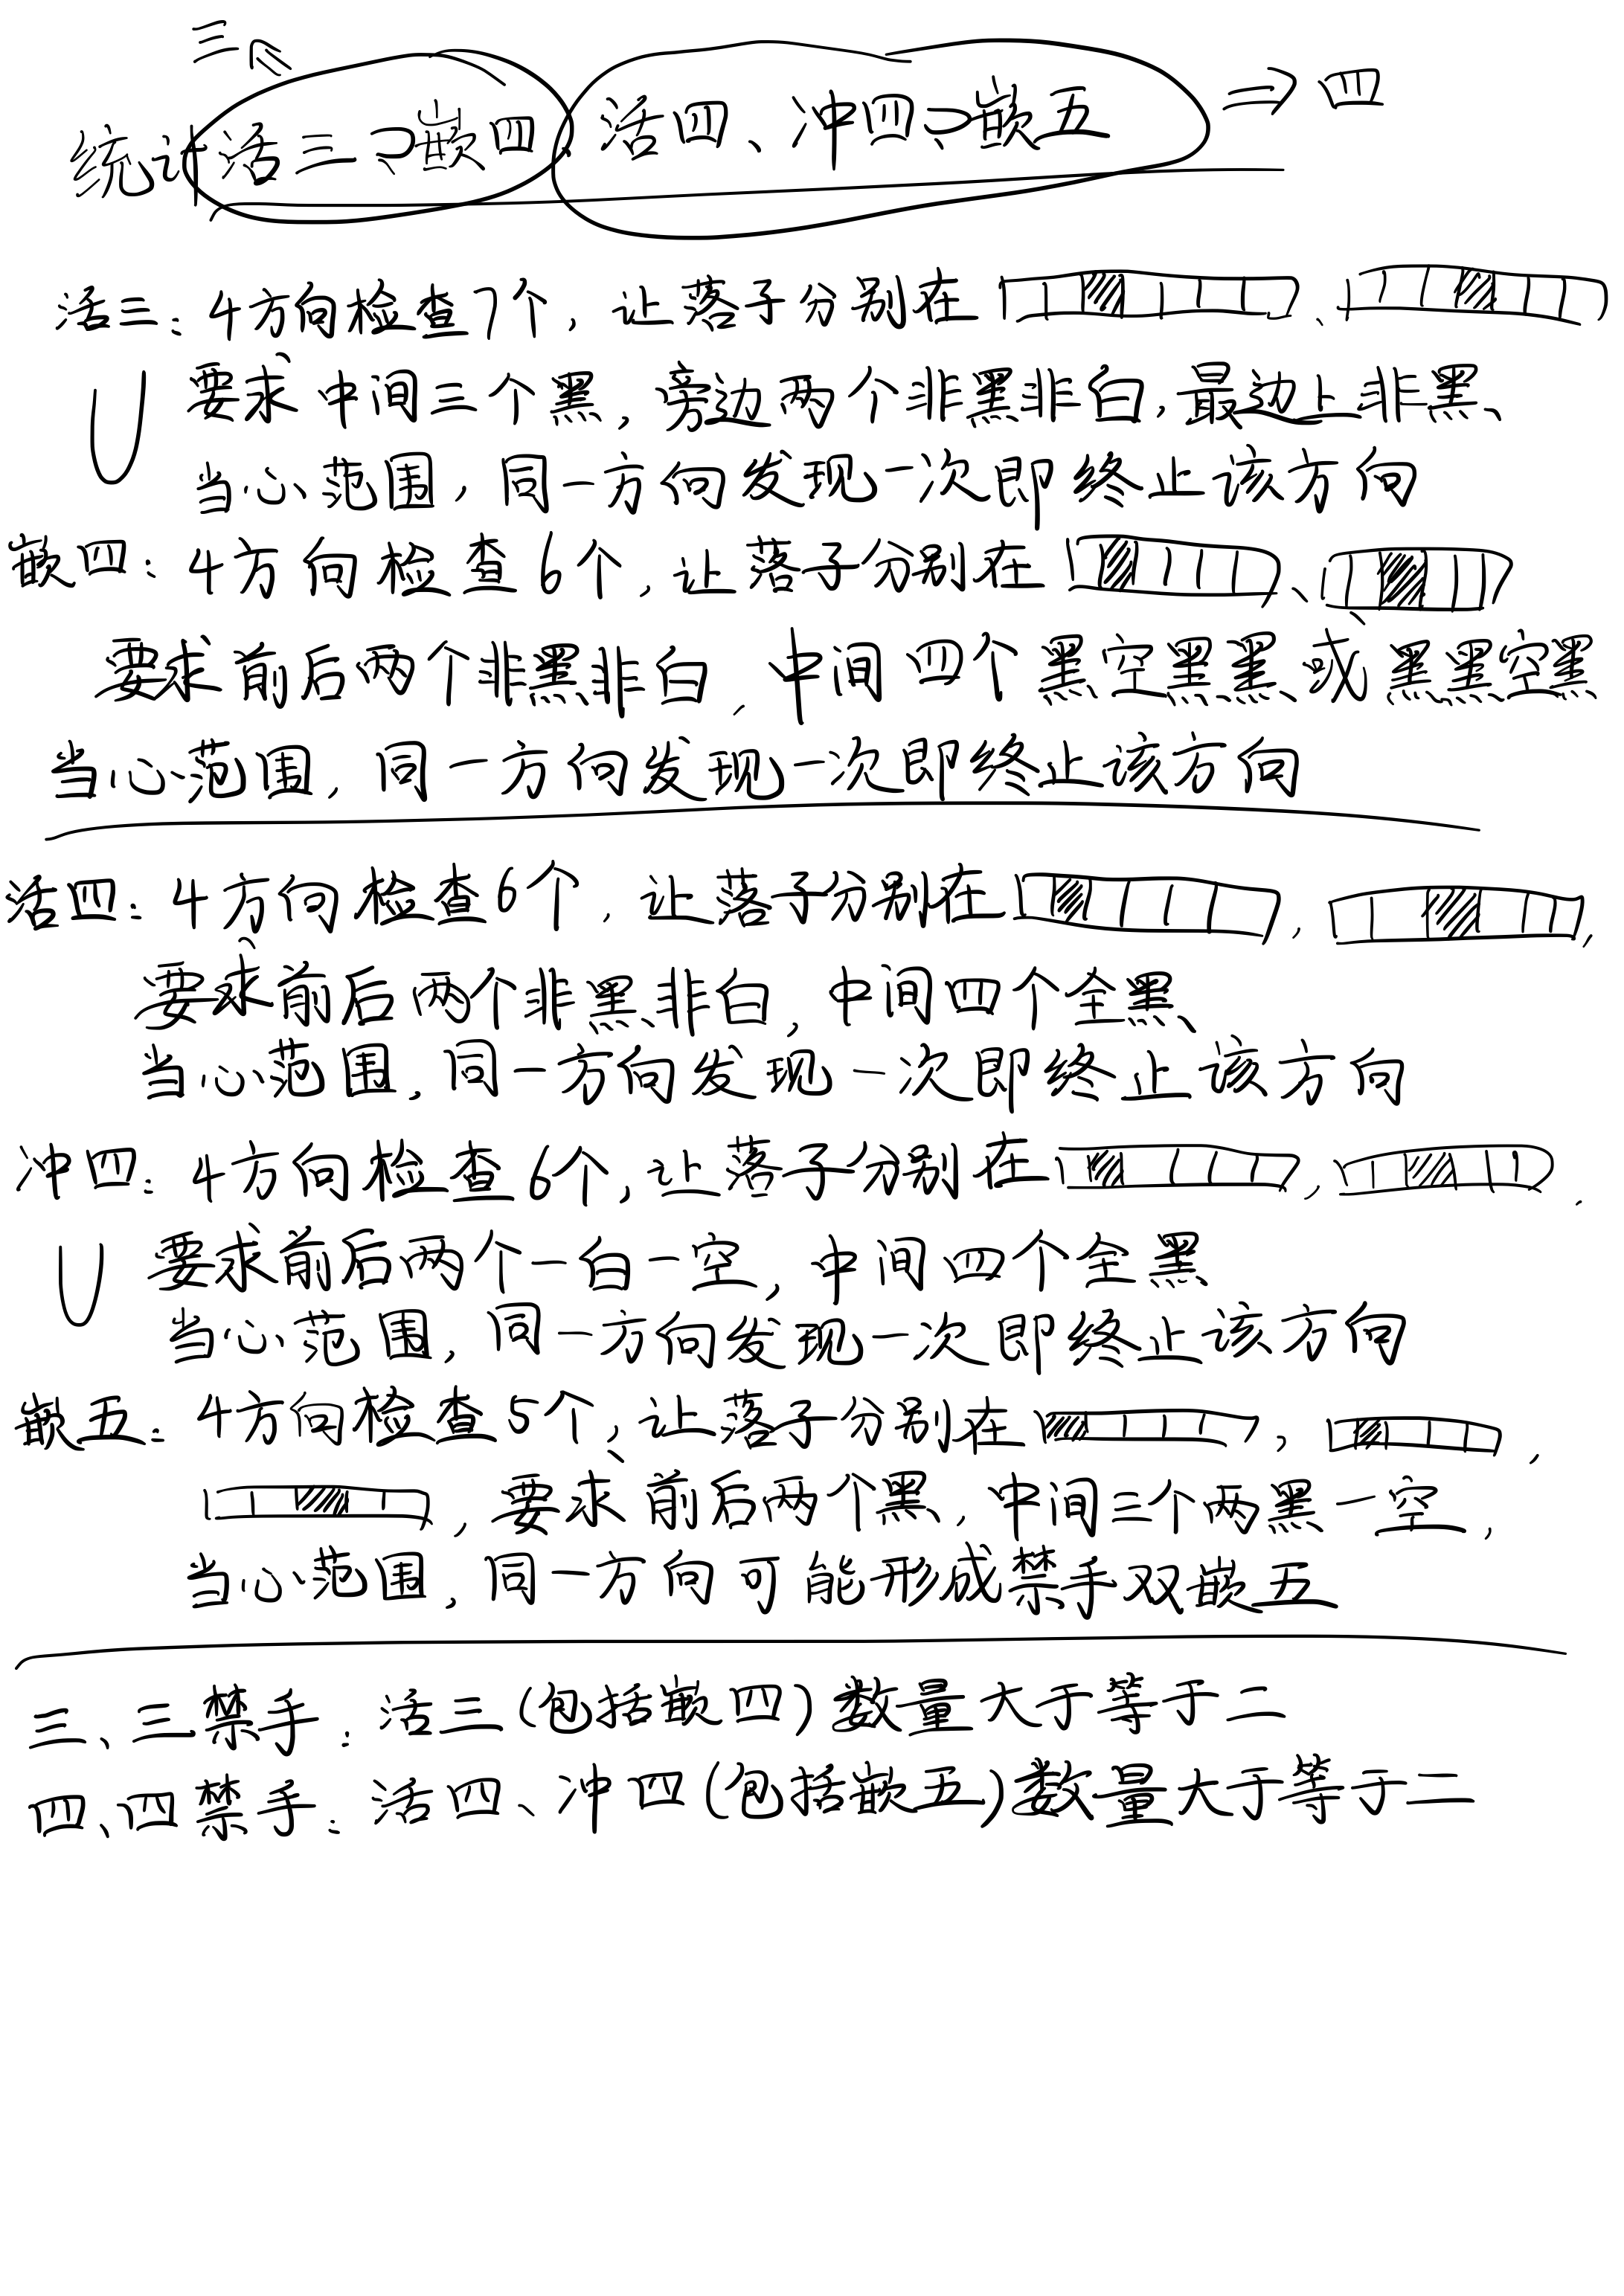 三
统计活三⊃嵌四、活四、冲四⊃嵌五 ⇒ 四
活三:4方向检查7个,让落子分别在 、
要求中间三个黑,旁边两个非黑非白,最边上非黑
当心范围,同一方向发现一次即终止该方向
嵌四:4方向检查6个,让落子分别在 、
要求前后两个非黑非白,中间四个黑空黑黑或黑黑空黑
当心范围,同一方向发现一次即终止该方向
活四:4方向检查6个,让落子分别在 , ,
要求前后两个非黑非白,中间四个全黑
当心范围,同一方向发现一次即终止该方向
冲四:4方向检查6个,让落子分别在 , ,
∪ 要求前后两个一白一空,中间四个全黑
当心范围,同一方向发现一次即终止该方向
嵌五:4方向检查5个,让落子分别在 , ,
,要求前后两个黑,中间三个两黑一空,
当心范围,同一方向可能形成禁手双嵌五
三、三禁手:活三(包括嵌四)数量大于等于二
四、四禁手:活四、冲四(包括嵌五)数量大于等于二